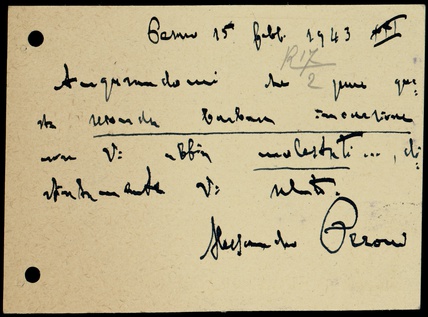 15 febb. 1943 XXI
R17
2
Augurandomi che pure que=
sta seconda barbara incursione
non Vi abbia molestati..., di=
stintamente Vi saluto.
Alessandro